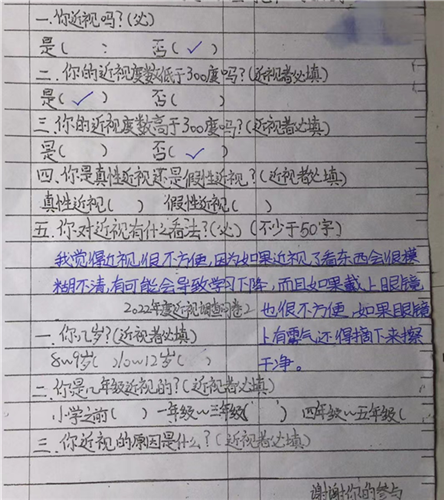 一.你近视吗?(必)
是(  )  否(✓)
二.你的近视度数低于300度吗?(近视者必填)
是(✓)  否(  )
三.你的近视度数高于300度吗?(近视者必填)
是(  )  否(✓)
四.你是真性近视还是假性近视?(近视者必填)
真性近视(  )  假性近视(  )
五.你对近视有什么看法?(必)(不少于50字)
我觉得近视很不方便,因为如果近视了看东西会很模
糊不清,有可能会导致学习下降,而且如果戴上眼镜
也很不方便,如果眼镜
上有雾气还得摘下来擦
干净。
2022年度近视调查问卷2
一.你几岁?(近视者必填)
8~9岁(  )  10~12岁(  )
二.你是几年级近视的?(近视者必填)
小学之前(  )  一年级~三年级(  )  四年级~五年级(
三.你近视的原因是什么?(近视者必填)
谢谢你的参与